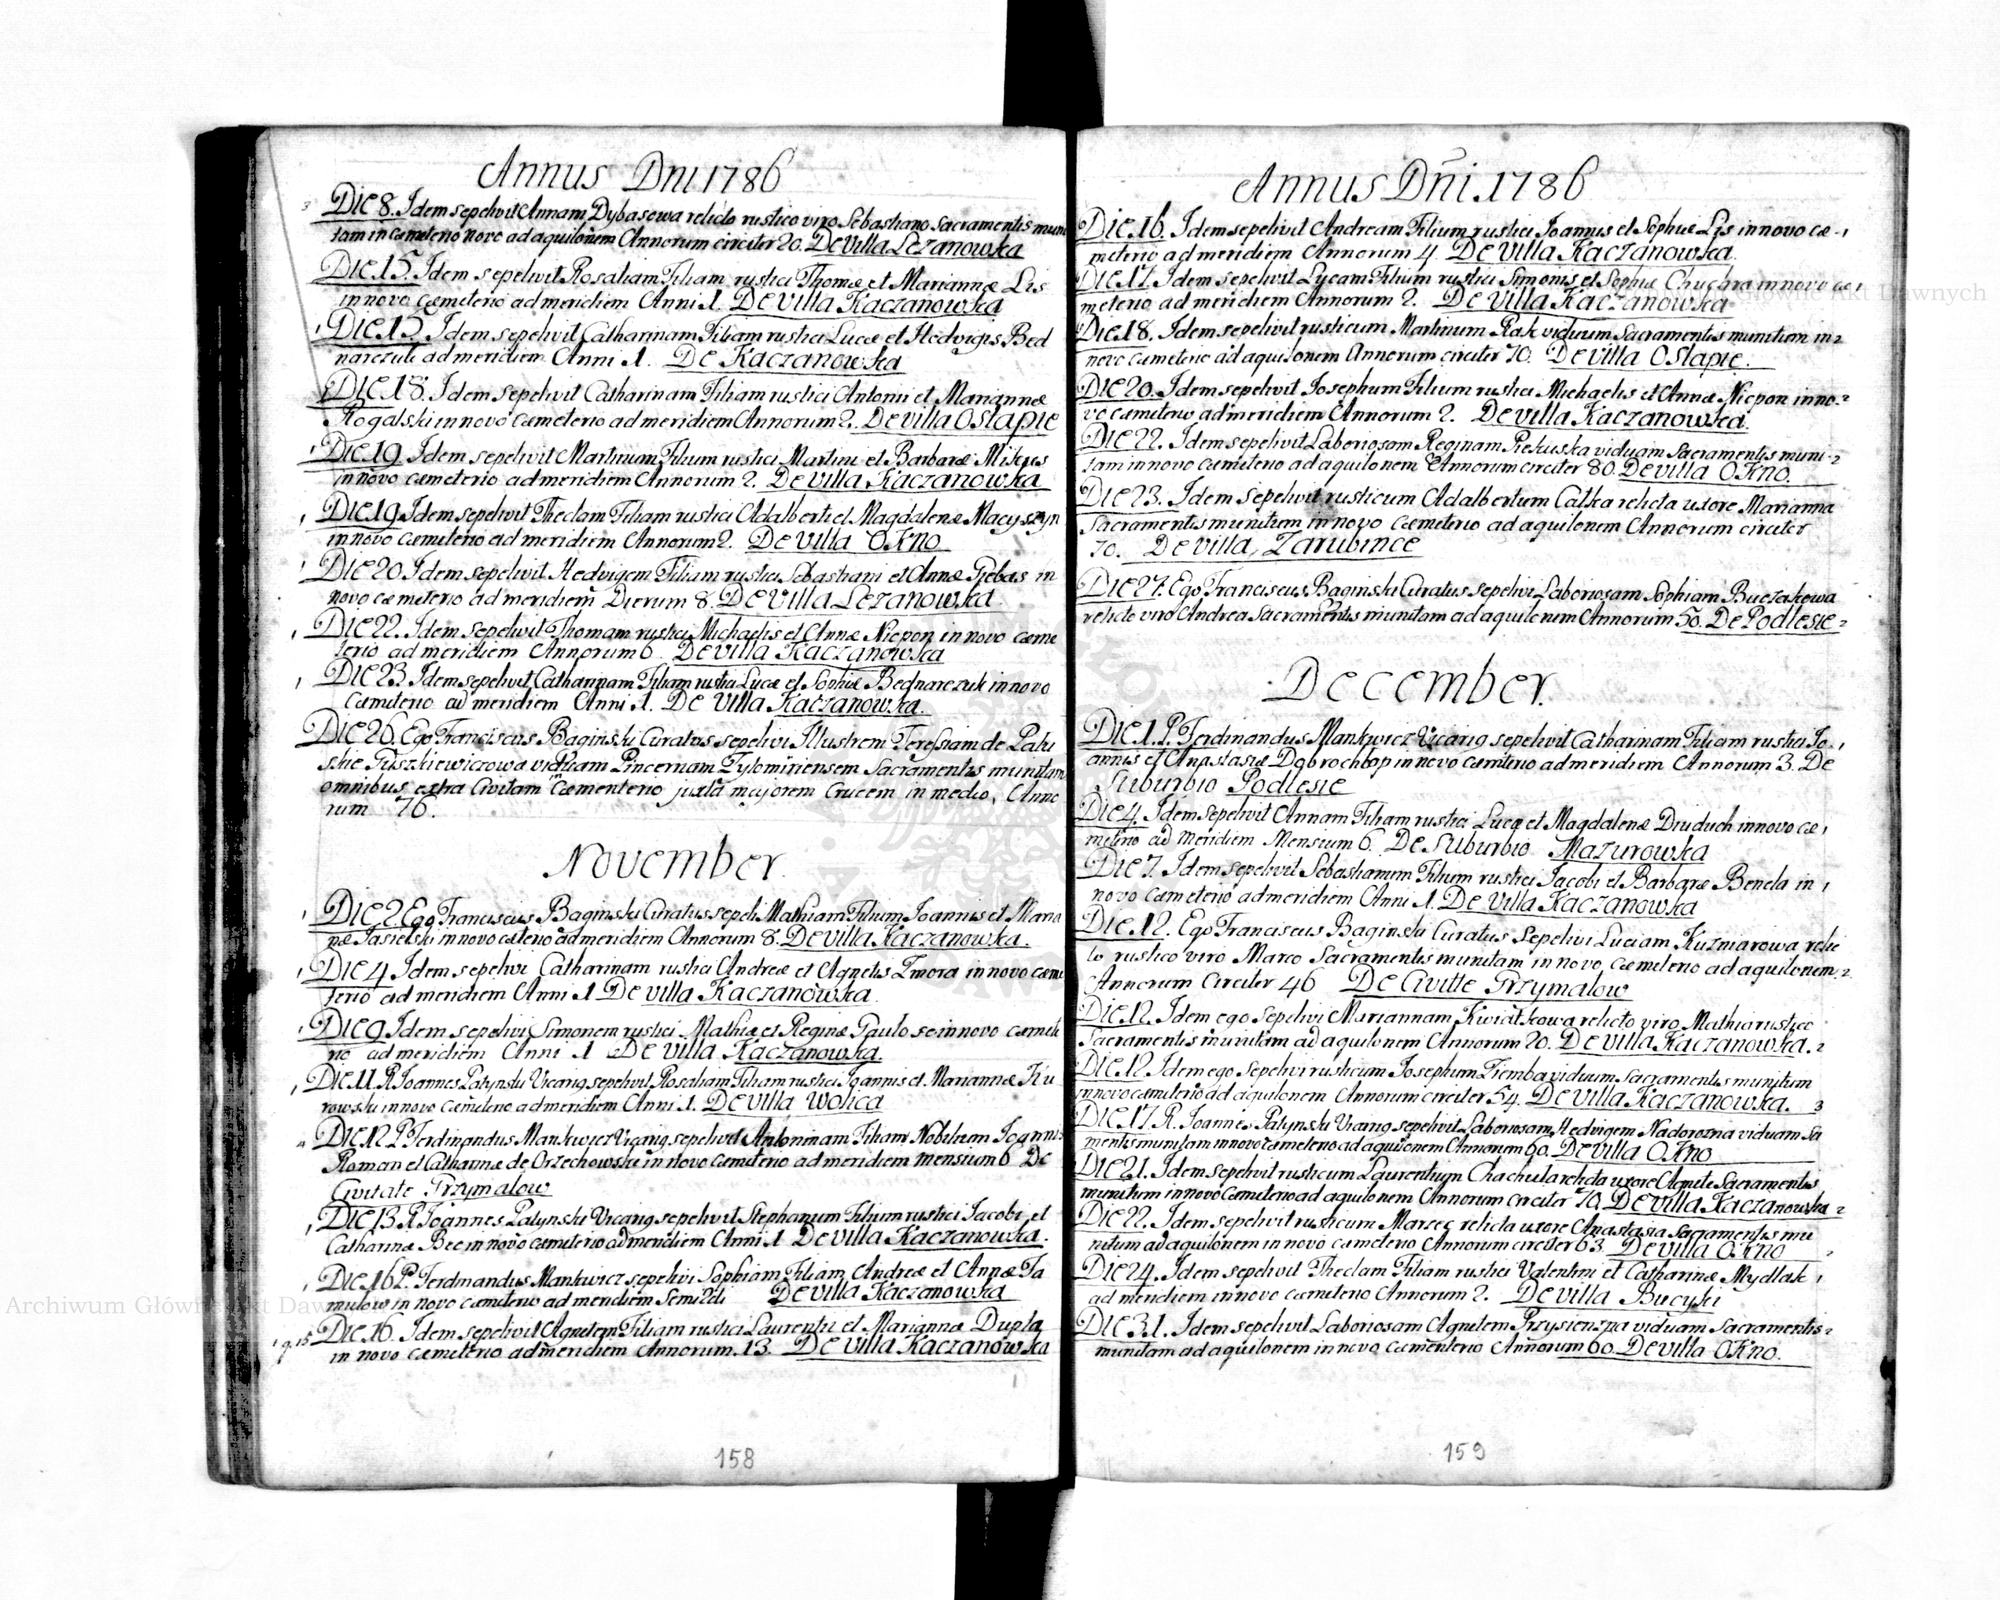 Annus Dni 1786
3 Die 8. Idem sepelivit Annam Dybasowa relicto rustico viro Sebastiano Sacramentis muni
tam in cæmeterio novo ad aquilonem Annorum circiter 20. De Villa Lezanowska
Die 15. Idem sepelivit Rosaliam Filiam rustici Thomæ et Mariannæ Lis
in novo cæmeterio ad meridiem Anni 1. De Villa Kaczanowska
1 Die 15. Idem sepelivit Catharinam Filiam rustici Lucæ et Hedvigis Bed
narczuk ad meridiem Anni 1. De Kaczanowska
1 Die 18. Idem sepelivit Catharinam Filiam rustici Antonii et Mariannæ
Rogalski in novo cæmeterio ad meridiem Annorum 2. De villa Ostapie
1 Die 19 Idem sepelivit Martinum Filium rustici Martini et Barbaræ Mikus
in novo cæmeterio ad meridiem Annorum 2. De villa Kaczanowska
1 Die 19 Idem sepelivit Theclam Filiam rustici Adalberti et Magdalenæ Macyszyn
in novo cæmeterio ad meridiem Annorum 2. De Villa Okno
1 Die 20 Idem sepelivit Hedvigem Filiam rustici Sebastiani et Annæ Gębas in
novo cæmeterio ad meridiem Dierum 8. De Villa Lezanowska
1 Die 22. Idem sepelivit Thomam rustici Michaelis et Annæ Niepon in novo cæme
terio ad meridiem Annorum 6. De villa Kaczanowska
1 Die 23. Idem sepelivit Catharinam Filiam rustici Lucæ et Sophiæ Bednarczuk in novo
Cæmiterio ad meridiem Anni 1. De Villa Kaczanowska.
Die 26. Ego Franciscus Baginski Curatus sepelivi Illustrem Teresiam de
Tyszkiewiczowa viduam Pincernam Zytomiriensem Sacramentis munitam
omnibus extra Civitam Cæmenterio juxta majorem Crucem in medio, Anno
rum 76.
November.
1 Die 2 Ego Franciscus Baginski Curatus sepeli Mathiam Filium Joannis et Maria
næ Jasielski in novo cæterio ad meridiem Annorum 8. De villa Kaczanowska.
1 Die 4 Idem sepelivi Catharinam rustici Andreæ et Agnetis Zmora in novo cæme
terio ad meridiem Anni 1 De villa Kaczanowska
1 Die 9 Idem sepelivi Simonem rustici Mathiæ et Reginæ in novo cæmete
rio ad meridiem Anni 1 De villa Kaczanowska.
1 Die 11 R. Joannes Patynski Vicarius sepelivit Rosaliam Filiam rustici Joannis et Mariannæ
rowski in novo cæmiterio ad meridiem Anni 1. De villa Wolica
Die 12 P. Ferdinandus Mankiwicz Vicarius sepelivit Antoninam Filiam Nobilium Joannis
Roman et Catharinæ de Orzechowski in novo cæmiterio ad meridiem mensium 6 De
Civitate Grzymalow
1 Die 13 R. Joannes Patynski Vicarius sepelivit Stephanum Filium rustici Jacobi et
Catharinæ Bec in novo cæmiterio ad meridiem Anni 1 De villa Kaczanowska.
1 Die 16 P. Ferdinandus Mankwicz sepelivi Sophiam Filiam Andreæ et Annæ
in novo cæmiterio ad meridiem De villa Kaczanowska
1 Die 16. Idem sepelivit Agnetem Filiam rustici Laurentii et Mariannæ Dupla
in novo cæmeterio ad meridiem Annorum. 13. De villa Kaczanowska
158
Annus Dni. 1786
Die 16. Idem sepelivit Andream Filium rustici Joannis et Sophiæ Lis in novo cæ- 1
meterio ad meridiem Annorum 4. De Villa Kaczanowska.
Die 17. Idem sepelivit Lucam Filium rustici Simonis et Sophiæ Chuchra in novo cæ 1
meterio ad meridiem Annorum 2. De Villa Kaczanowska
Die 18. Idem sepelivit rusticum Martinum Rak viduum Sacramentis munitum in 2
novo cæmeterio ad aquilonem Annorum circiter 70. De villa Ostapie.
Die 20. Idem sepelivit Josephum Filium rustici Michaelis et Annæ Niepon in no- 2
vo cæmiterio ad meridiem Annorum 2. De villa Kaczanowska.
Die 22. Idem sepelivit Laboriosam Reginam Piekuska viduam Sacramentis muni- 2
tam in novo cæmiterio ad aquilonem Annorum circiter 80. De villa Okno.
Die 23. Idem sepelivit rusticum Adalbertum Calka relicta uxore Marianna
Sacramentis munitum in novo cæmeterio ad aquilonem Annorum circiter
70. De villa Zarubince
Die 27. Ego Franciscus Baginski Curatus sepelivi Laboriosam Sophiam Buczakowa
relicto viro Andrea Sacramentis munitam ad aquilonem Annorum 50. De Podlesie 2
December.
Die 1. P. Ferdinandus Mankwicz Vicarius sepelivit Catharinam Filiam rustici Jo- 1
annis et Anastasiæ Dobrochłop in novo cæmiterio ad meridiem Annorum 3. De
Suburbio Podlesie
Die 4. Idem sepelivit Annam Filiam rustici Lucæ et Magdalenæ Druduch in novo cæ 1
meterio ad meridiem Mensium 6. De Suburbio Mazurowka
Die 7. Idem sepelivit Sebastianum Filium rustici Jacobi et Barbaræ Benela in 1
novo cæmeterio ad meridiem Anni 1. De Villa Kaczanowska
Die 12. Ego Franciscus Baginski Curatus Sepelivi Luciam Kuzniarowa relic
to rustico viro Marco Sacramentis munitam in novo cæmiterio ad aquilonem 2
Annorum Circiter 46 De Civitte Grzymalow
Die 12. Idem ego Sepelivi Mariannam Kwiatkowa relicto viro Mathia rustico
Sacramentis munitam ad aquilonem Annorum 20. De villa Kaczanowska. 2
Die 12. Idem ego Sepelivi rusticum Josephum Ziemba viduum Sacramentis munitum
in novo cæmiterio ad aquilonem Annorum circiter 54. De villa Kaczanowska. 3
Die 17. R. Joannes Patynski Vicarius sepelivit Laboriosam Hedvigem Nadorozna viduam Sa
mentis munitam in novo cæmeterio ad aquilonem Annorum 60. De villa Okno
Die 21. Idem sepelivit rusticum Laurentium Chachula relicta uxore Agnete Sacramentis
munitum in novo cæmeterio ad aquilonem Annorum circiter 70. De villa Kaczanowska 2
Die 22. Idem sepelivit rusticum Marzec relicta uxore Anastasia Sacramentis mu
nitum ad aquilonem in novo cæmeterio Annorum circiter 63. De villa Okno
Die 24. Idem sepelivit Theclam Filiam rustici Valentini et Catharinæ Mydlak 1
ad meridiem in novo cæmiterio Annorum 2. De villa Bucyki
Die 31. Idem sepelivit Laboriosam Agnetem viduam Sacramentis 2
munitam ad aquilonem in novo cæmenterio Annorum 60. De villa Okno.
159
Archiwum Główne Akt Dawnych